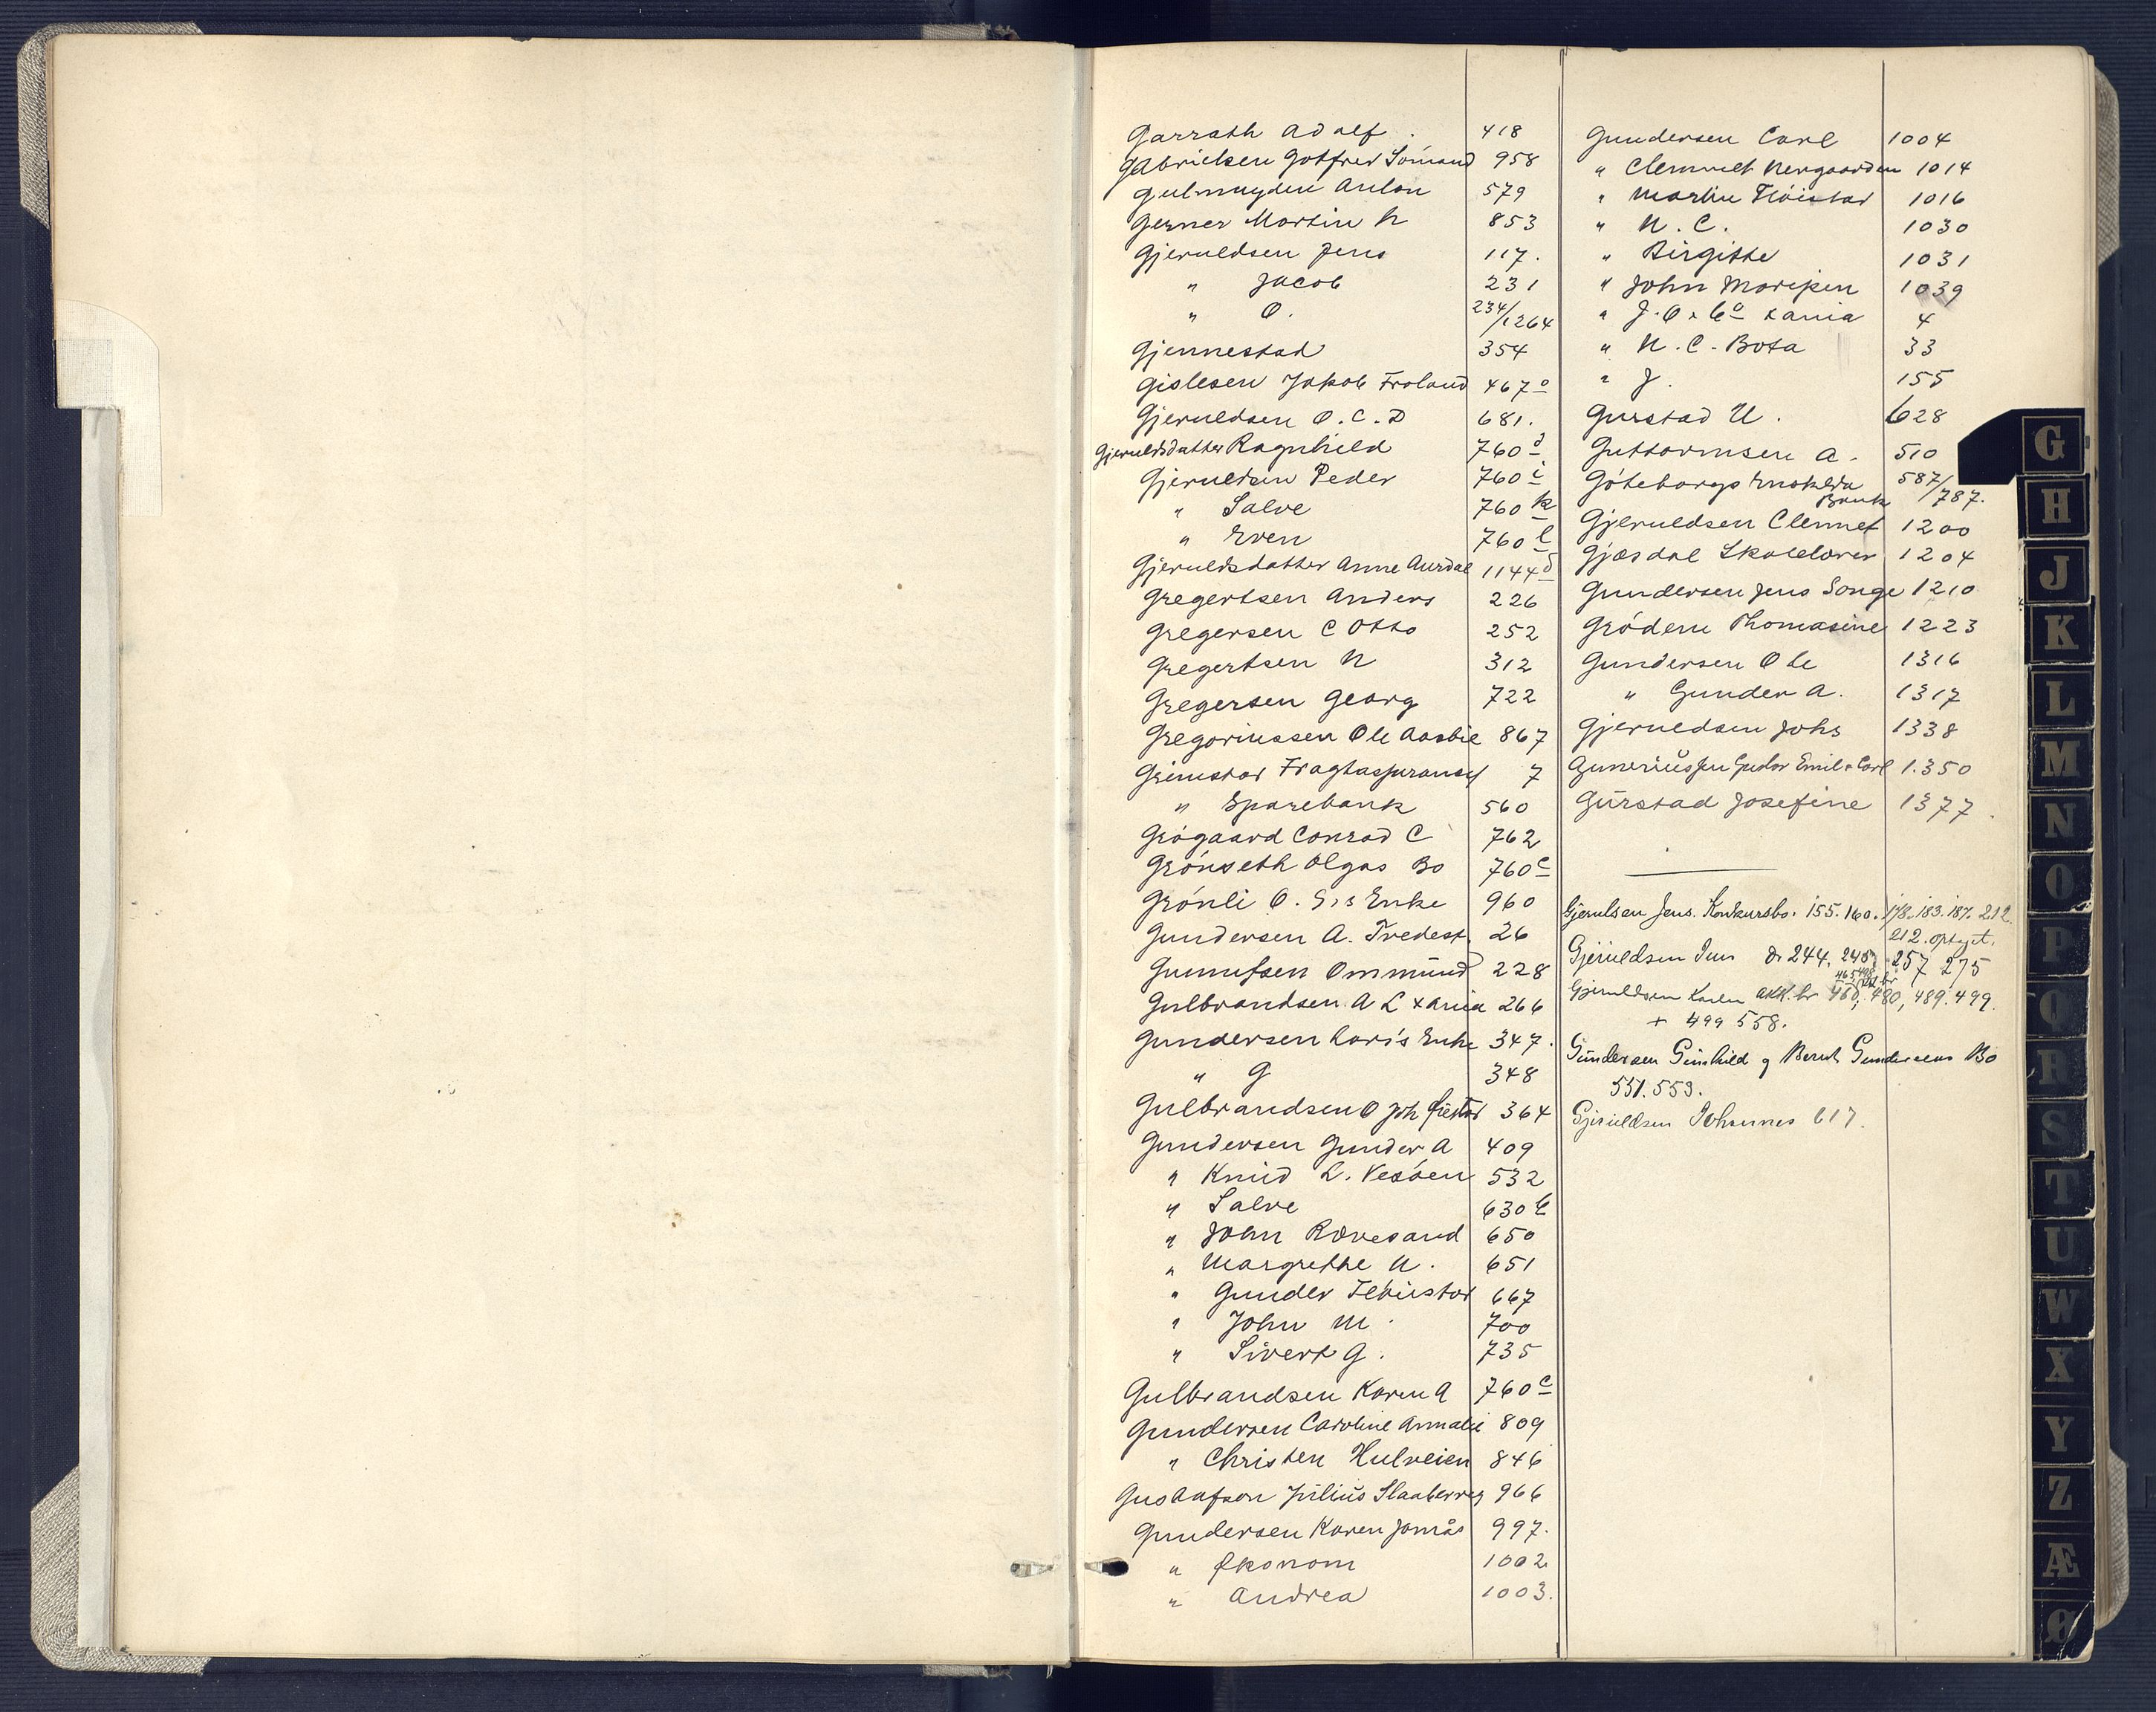 Garrath Adolf . 418
Gabrielsen Gotfred Sömand 958
Gulmuyden Anton 579
Gerner Martin N 853
Gjeruldsen Jens 117.
" Jacob 231
" O. 234/1264
Gjennestad 354
Gislesen Jakob Froland 467 o
Gjeruldsen O. C. D 681.
Gjeruldsdatter Ragnhild 760 d
Gjeruldsen Peder 760 i
" Salve 760 k
" Even 760 l
Gjeruldsdatter Anne Aurdal 1144 d
Gregertsen Anders 226
Gregersen C Otto 252
Gregertsen N 312
Gregersen Georg 722
Gregoriussen Ole Aasbie 867
Grimstad 7
" Sparebank 560
Grögaard Conrad C 762
Grönseth Olgas Bo 760 c
Grönli O. G's Enke 960
Gundersen A. Tvedest. 26
Gunnufsen Ommund 228
Gulbrandsen A L Xania 266
Gundersen Lars's Enke 347.
" G 348
Gulbrandsen O Joh 364
Gundersen Gunder A 409
" Knud L. Vesöen 532
" Salve 630 b
" John Rævesand 650
" Margrethe N. 651
" Gunder Flöistad 667
" John M. 700
" Sivert G. 735
Gulbrandsen Karen A 760 c
Gundersen Caroline Annalie 809
" Christen Hulveien 846
Gustafson Julius 966
Gundersen Karen Jomås 997.
" Økonom 1002
" Andrea 1003.
Gundersen Carl 1004
" Clemmet Nergaarden 1014
" Martin Flöistad 1016
" N. C. 1030
" Birgitte 1031
" John 1039
" J. O & Co Xania 4
" N. C. Bota 33
" J. 155
Gurstad N. 628
Guttormsen A. 510
Göteborgs Enskilda Bank 587/787.
Gjeruldsen Clemmet 1200
Gjæsdal 1204
Gundersen Jens Songe 1210
Grödem Thomasine 1223
Gundersen Ole 1316
" Gunder A. 1317
Gjeruldsen Johs 1338
Guneriussen Gustav Emil & Carl 1.350
Gurstad Josefine 1377.
Gjerulsen Jens. Konkursbo. 155. 160. 178. 183. 187. 212.
212. optaget.
Gjeruldsen Jens Do 244. 248. 257 275
Gjeruldsen Karen akk. bo 460, 480, 489. 499.
+ 499 558.
Gundersen Gunhild og Bernt Gundersens Bo
551. 553.
Gjeruldsen Johannes 617.
G
H
J
K
L
M
N
O
P
Q
R
S
T
U
W
X
Y
Z
Æ
Ø